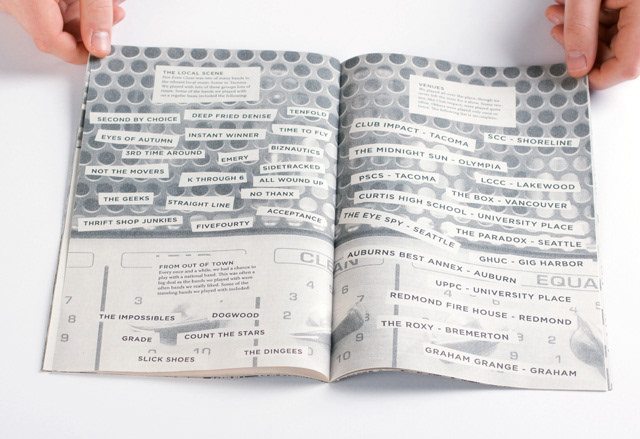 THE LOCAL SCENE
SECOND BY CHOICE
DEEP FRIED DENISE
TENFOLD
EYES OF AUTUMN
INSTANT WINNER
TIME TO FLY
3RD TIME AROUND
EMERY
BIZNAUTICS
NOT THE MOVERS
K THROUGH 6
SIDETRACKED
ALL WOUND UP
THE GEEKS
STRAIGHT LINE
NO THANX
THRIFT SHOP JUNKIES
FIVEFOURTY
ACCEPTANCE
FROM OUT OF TOWN
Every once and a while, we had a chance to
play with a national band. This was often a
big deal as the bands we played with were
often bands we really liked. Some of the
traveling bands we played with included:
THE IMPOSSIBLES
DOGWOOD
GRADE
COUNT THE STARS
SLICK SHOES
THE DINGEES
CLEAN
7
8
9
6
3
4
2
9
10
VENUES
CLUB IMPACT - TACOMA
SCC - SHORELINE
THE MIDNIGHT SUN - OLYMPIA
PSCS - TACOMA
LCCC - LAKEWOOD
THE BOX - VANCOUVER
CURTIS HIGH SCHOOL - UNIVERSITY PLACE
THE EYE SPY - SEATTLE
THE PARADOX - SEATTLE
AUBURNS BEST ANNEX - AUBURN
GHUC - GIG HARBOR
EQUA
UPPC - UNIVERSITY PLACE
REDMOND FIRE HOUSE - REDMOND
THE ROXY - BREMERTON
GRAHAM GRANGE - GRAHAM